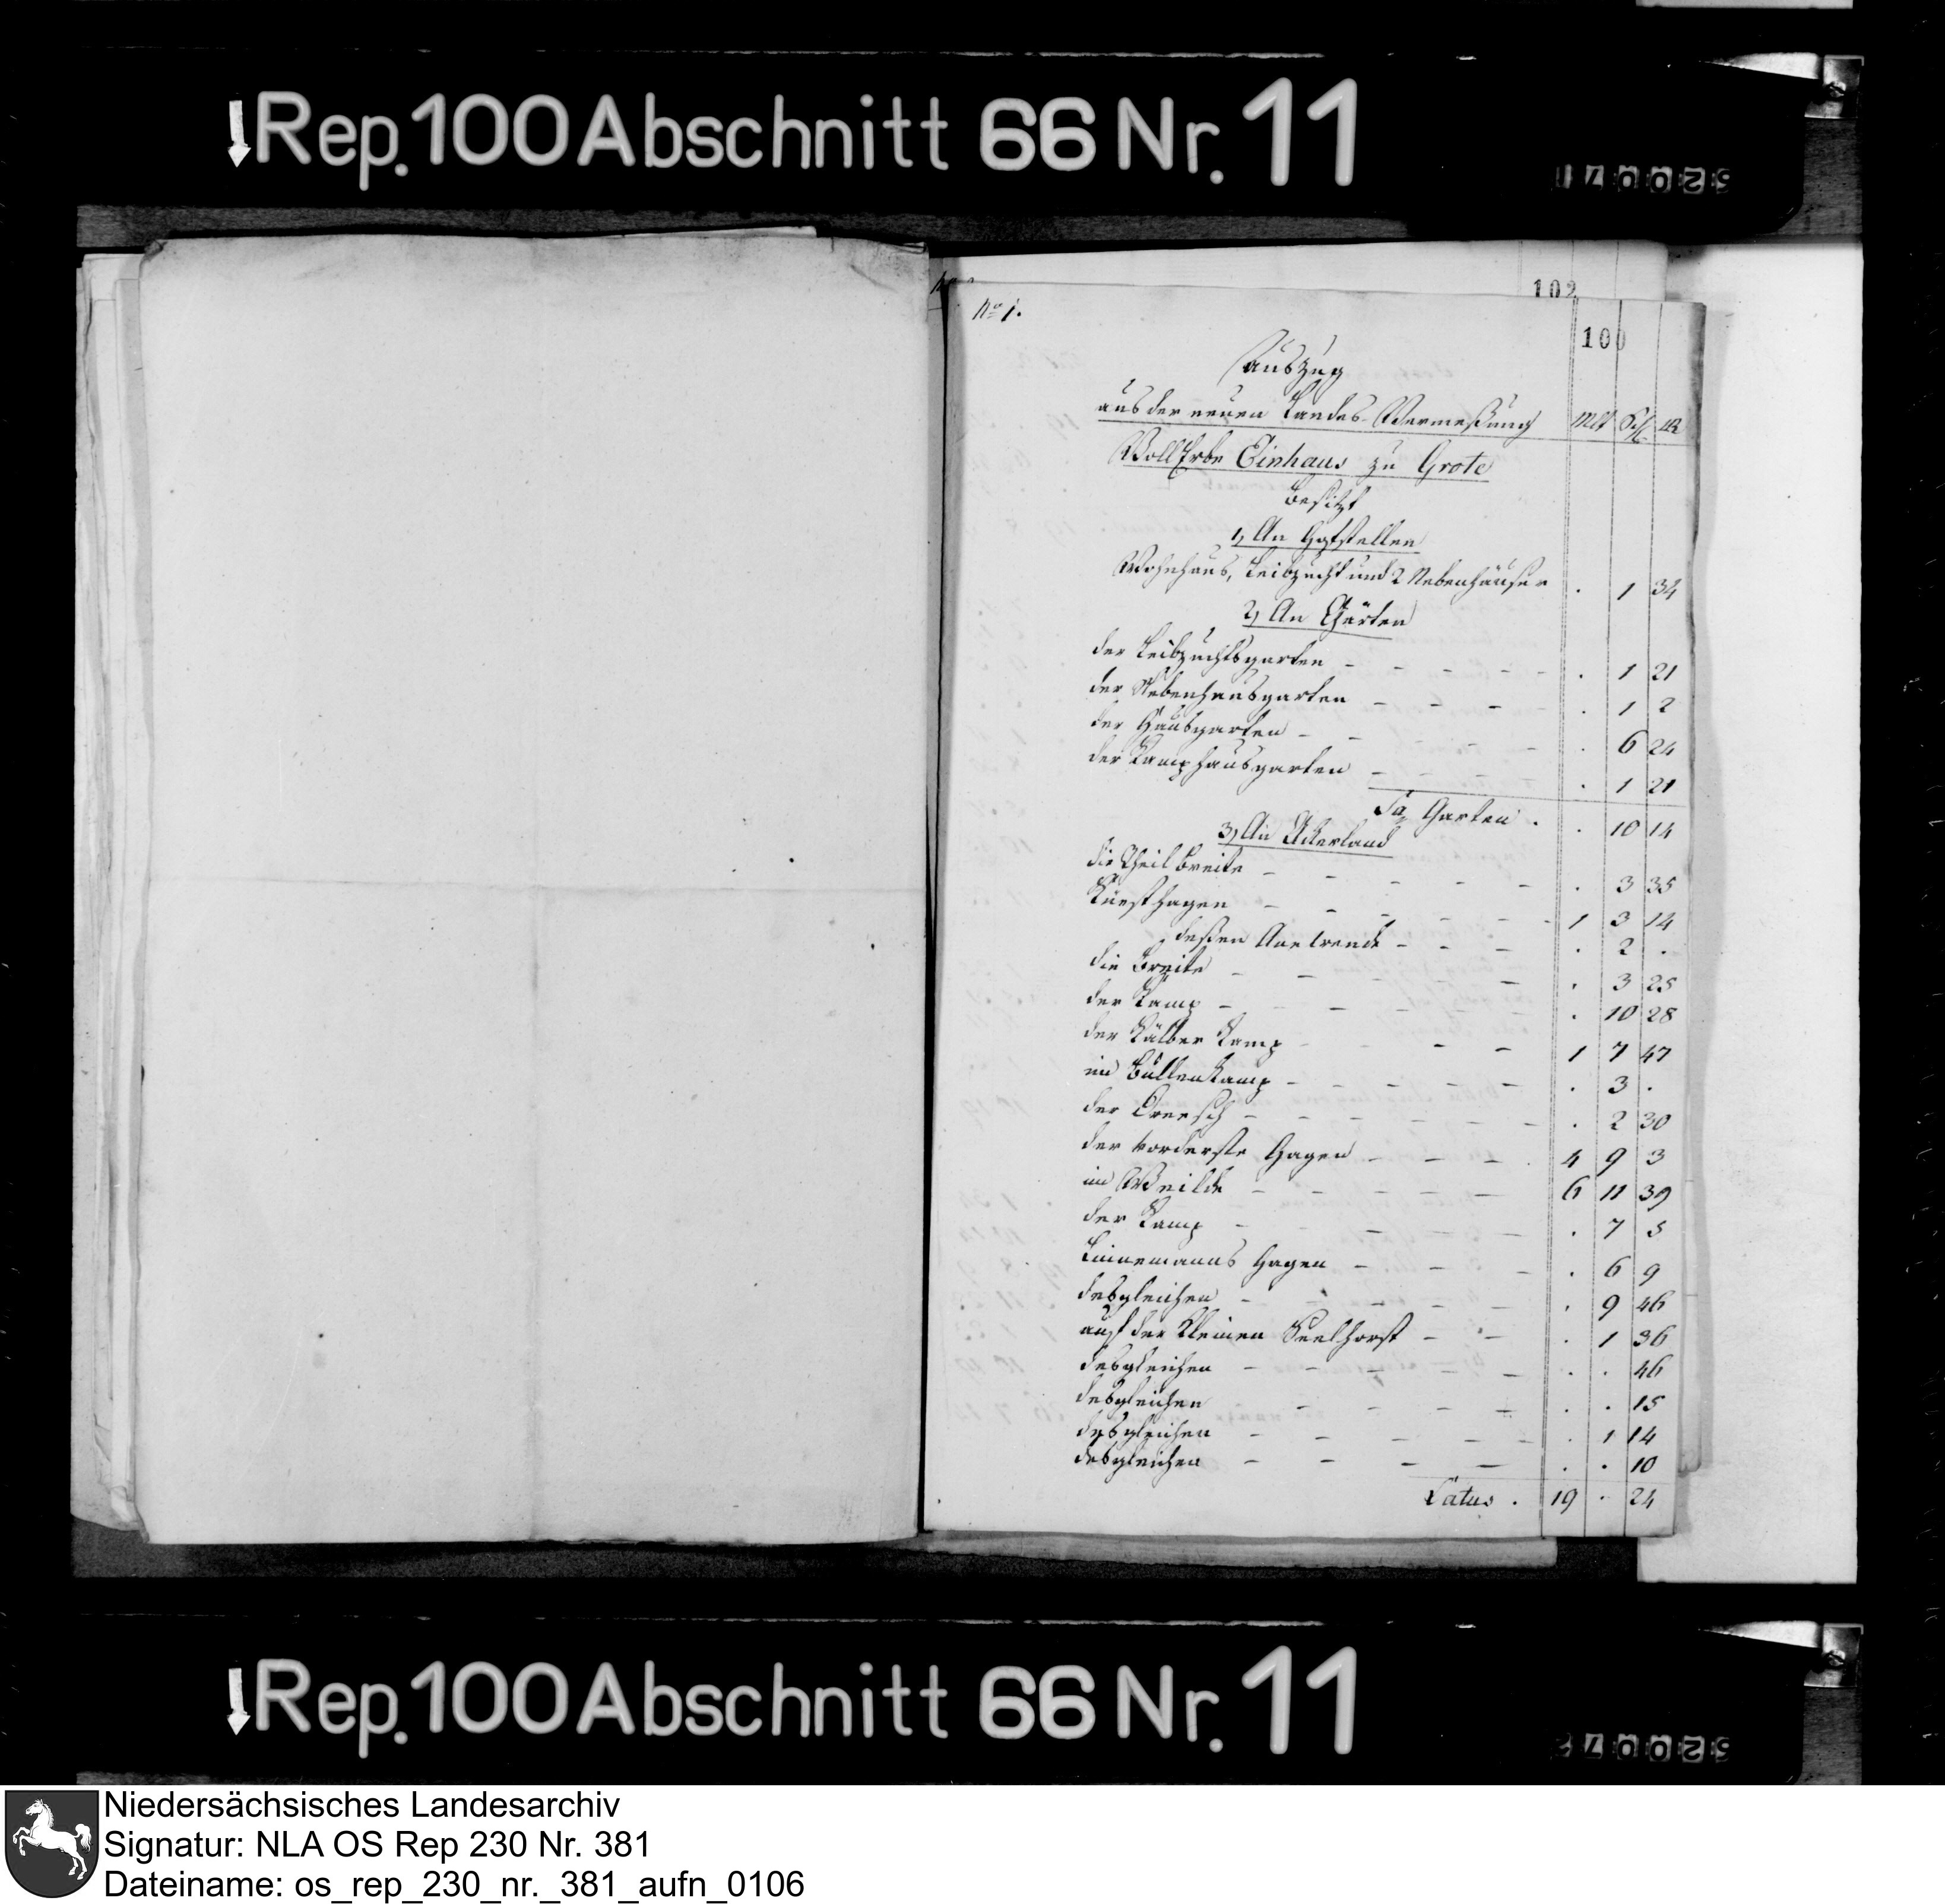 Rep. 100 Abschnitt 66 Nr. 11
102
No 1.
100
Auszug
aus der neuen Landes-Vermeßung Mlt Schl R
Vollerbe Einhaus zu Grote
besitzt
1, An Hofstellen
Wohnhaus, Leibzucht und 2 Nebenhäuser . 1 34
2, An Gärten
der Leibzuchtsgarten - - - - - . 1 21
der Nebenhausgarten - - - - . 1 2
der Hausgarten - - - - - . 6 24
der Kamphausgarten - - - - . 1 21
Sa Garten . . 10 14
3, An Ackerland
die Theil breite - - - - - . 3 35
Küesthagen - - - - - - 1 3 14
deßen Anewende - - - . 2 .
die breite - - - - - . 3 25
der Kamp - - - - - . 10 28
der Kälber Kamp - - - - 1 7 47
im Bullenkamp - - - - - . 3 .
der Dreesch - - - - - - . 2 30
der vorderste Hagen - - - . 4 9 3
im Weilde - - - - - 6 11 39
der Kamp - - - - - . 7 5
Linnemanns Hagen - - - . 6 9
desgleichen - - - - - . 9 46
auf der kleinen Seelhorst - - . 1 36
desgleichen - - - - - . . 46
desgleichen - - - - . . 15
desgleichen - - - - - . 1 14
desgleichen - - - - . . 10
Latus . 19 . 24
Rep. 100 Abschnitt 66 Nr. 11
Niedersächsisches Landesarchiv
Signatur: NLA OS Rep 230 Nr. 381
Dateiname: os_rep_230_nr._381_aufn_0106